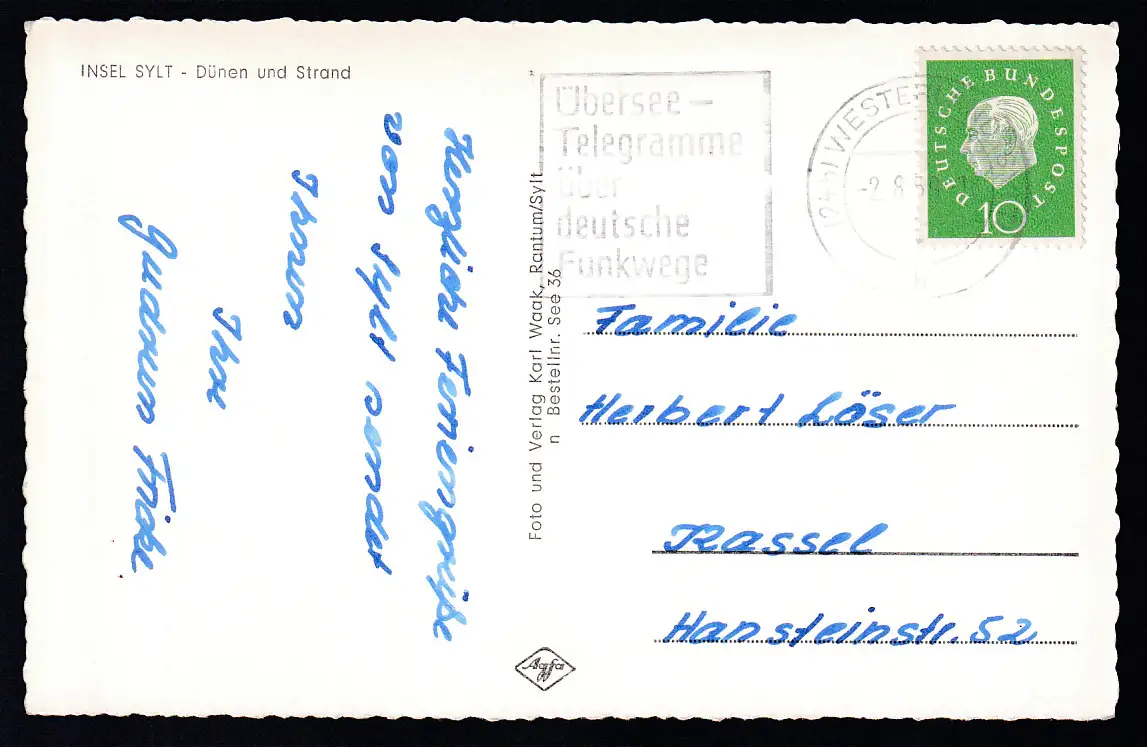 INSEL SYLT - Dünen und Strand
Herzliche Feriengrüße
von Sylt sendet
Ihnen
Ihre
Gudrun
Foto und Verlag Karl Waak, Rantum/Sylt
n Bestellnr. See 36
Übersee-
Telegramme
über
deutsche
Funkwege
DEUTSCHE BUNDESPOST
10
Familie
Herbert Löser
Kassel
Hansteinstr. 52
Agfa